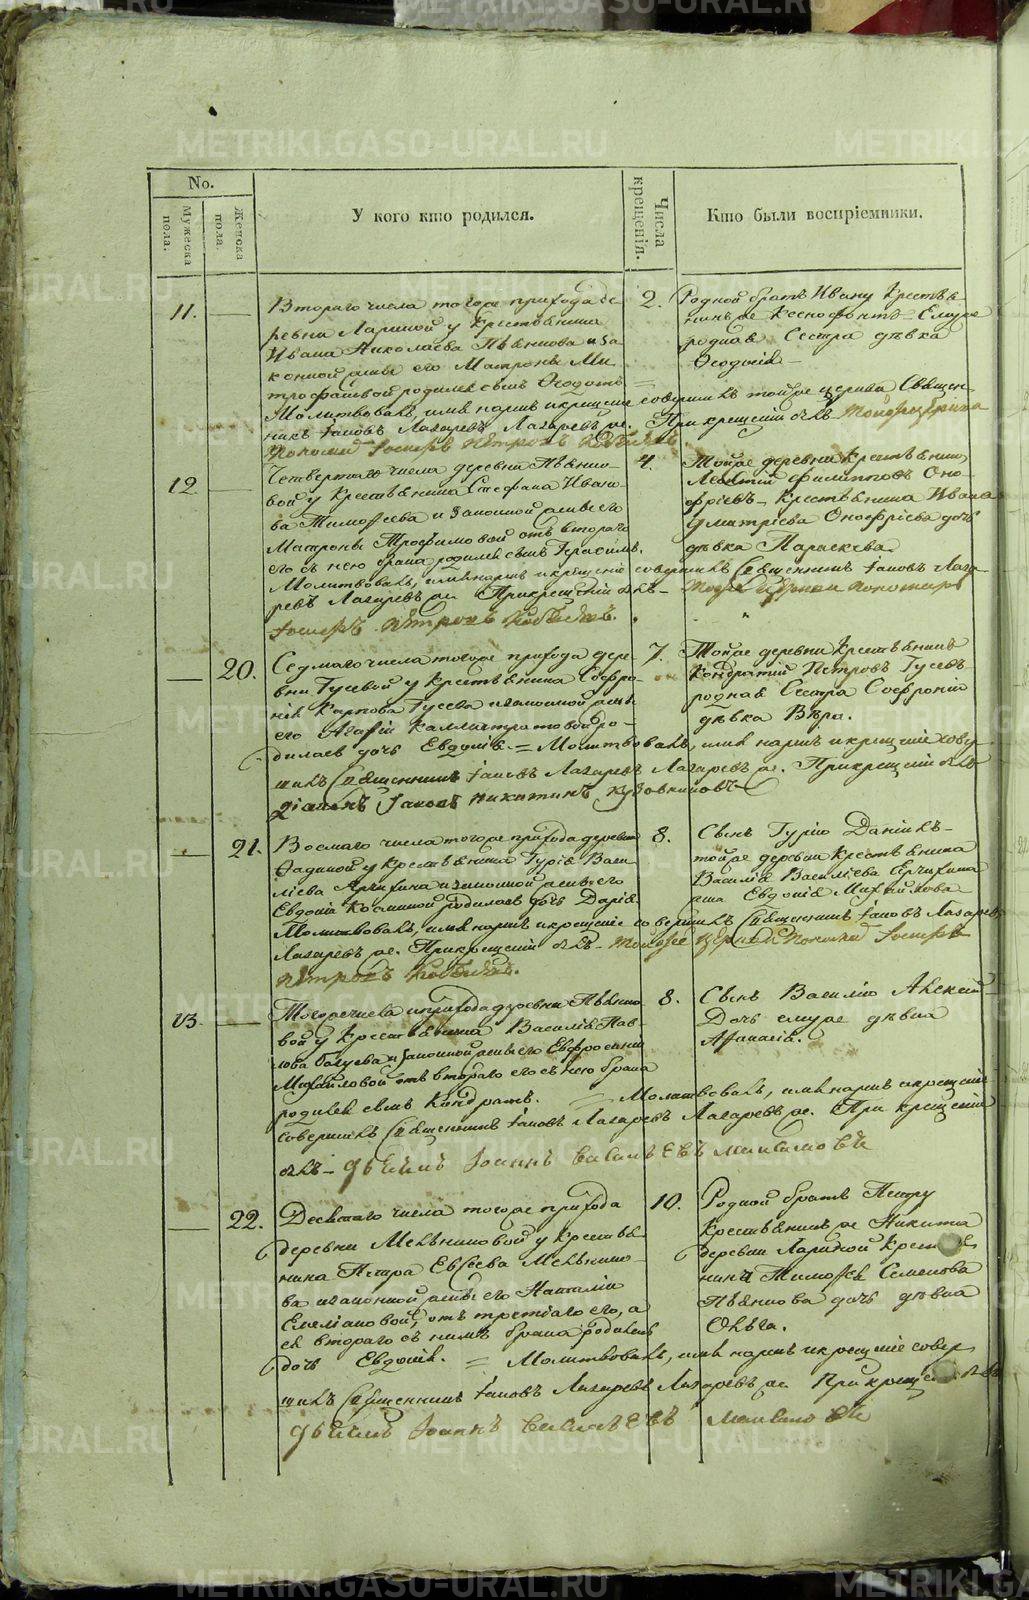 No.
Мужеска пола.
Женска пола.
У кого кто родился.
Числа крещенія.
Кто были воспріемники.
11.
Втораго числа тогоже прихода де
ревни Лариной у крестьянина
Ивана Николаева Пьянкова и за
конной жены его Матроны Ми
трофановой родился сынъ Ѳедотъ
Молитвовалъ, имя нарѣкъ и крещеніе совершилъ тойже церкви Священ
никъ Іаковъ Лазаревъ Лазаревъ же. При крещеніи былъ тойже церкви
Пономарь Іосифъ Петровъ
2.
Родной братъ Ивану крестья
нинъ же Ксенофонтъ Ему же
родная Сестра дѣвка
Ѳеодосія
12.
Четвертаго числа деревни Пьянко
вой у крестьянина Стефана Ивано
ва Тимофеева и законной жены его
Матроны Трофимовой отъ втораго
его съ нею брака родился сынъ Герасимъ.
Молитвовалъ, имя нарѣкъ и крещеніе совершилъ Священникъ Іаковъ Лаза
ревъ Лазаревъ же. При крещеніи былъ тойже церкви пономарь
Іосифъ Петровъ
4.
Тойже деревни крестьянинъ
Леонтій Филиповъ Оно
фріевъ крестьянина Ивана
Дмитріева Онофріева дочь
дѣвка Параскева.
20.
Седмаго числа тогоже прихода дере
вни Гусевой у крестьянина Софро
нія Карпова Гусева и законной жены
его Агафіи Каллистратовой ро
дилась дочь Евдокія. = Молитвовалъ, имя нарѣкъ и крещеніе совер
шилъ Священникъ Іаковъ Лазаревъ Лазаревъ же. При крещеніи былъ
Діаконъ Іаковъ Никитинъ
7.
Тойже деревни крестьянинъ
Кондратій Петровъ Гусевъ
родная Сестра Софронія
дѣвка Вѣра.
21.
Восмаго числа тогоже прихода деревни
у крестьянина Гурія Васи
лiева и законной жены его
Евдокіи Косминой родилась дочь Дарія.
Молитвовалъ, имя нарѣкъ и крещеніе совершилъ Священникъ Іаковъ Лазаревъ
Лазаревъ же. При крещеніи былъ тойже церкви пономарь Іосифъ
Петровъ
8.
Сынъ Гурію Даніилъ
тойже деревни крестьянина
Василія Василіева
жена Евдокія Михайлова
13.
Тогоже числа и прихода деревни Пьянко
вой у крестьянина Василія Пав
лова и законной жены его Евфросиніи
Михайловой отъ втораго его съ нею брака
родился сынъ Кондратъ. = Молитвовалъ, имя нарѣкъ и крещеніе
совершилъ Священникъ Іаковъ Лазаревъ Лазаревъ же. При крещеніи
былъ Дьячекъ Іоаннъ Васильевъ
8.
Сынъ Василію Алексей
Дочь ему же дѣвка
Афанасія.
22.
Десятаго числа тогоже прихода
деревни Мельниковой у крестья
нина Петра Евсеева Мельнико
ва и законной жены его Наталіи
Емеліановой, отъ третьяго его, а
ея втораго съ нимъ брака родилась
дочь Евдокія. = Молитвовалъ, имя нарѣкъ и крещеніе совер
шилъ Священникъ Іаковъ Лазаревъ Лазаревъ же. При крещеніи былъ
Дьячекъ Іоаннъ Васильевъ
10.
Родной братъ Петру
крестьянинъ же Никита
деревни Лариной крестья
нина Тимофея Семенова
Пьянкова дочь дѣвка
Ольга.
METRIKI.GASO-URAL.RU